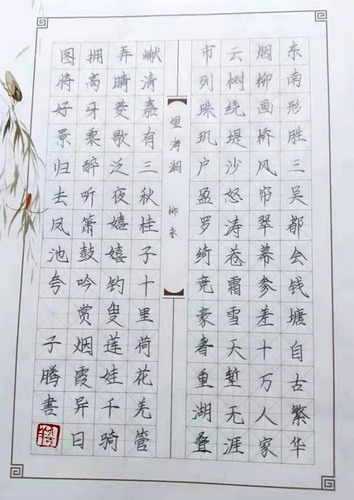 东南形胜三吴都会钱塘自古繁华
烟柳画桥风帘翠幕参差十万人家
云树绕堤沙怒涛卷霜雪天堑无涯
市列珠玑户盈罗绮竞豪奢重湖叠
望海潮 柳永
巘清嘉有三秋桂子十里荷花羌管
弄晴菱歌泛夜嬉嬉钓叟莲娃千骑
拥高牙乘醉听箫鼓吟赏烟霞异日
图将好景归去凤池夸 子腾书